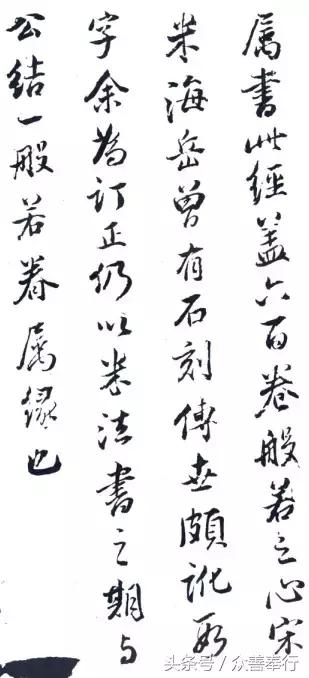 属书此经盖六百卷般若之心宋
米海岳曾有石刻傳世頗訛數
字余為訂正仍以米法書之期与
公結一般若眷属缘也
头条号／众善奉行